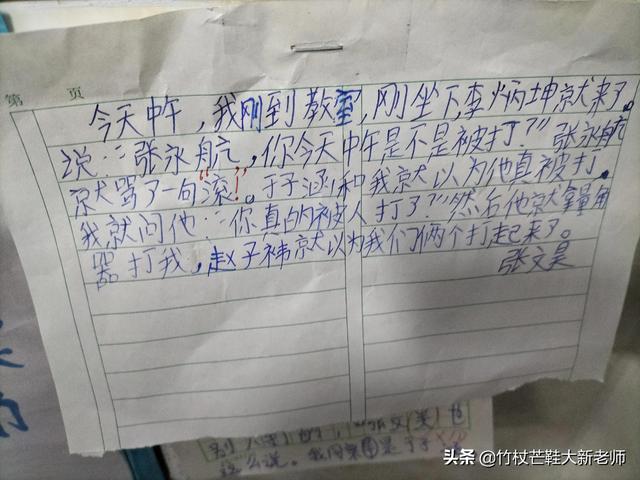 第 页
今天中午，我刚到教室，刚坐下，李炳坤就来了。
说："张永航，你今天中午是不是被打了？"张永航
就骂了一句"滚！"。于子涵和我就以为他真被打。
我就问他："你真的被人打了？"然后他就拿量角
器打我，赵子祎就以为我们俩个打起来了。
张文昊
这么说。我
头条 @竹杖芒鞋大新老师